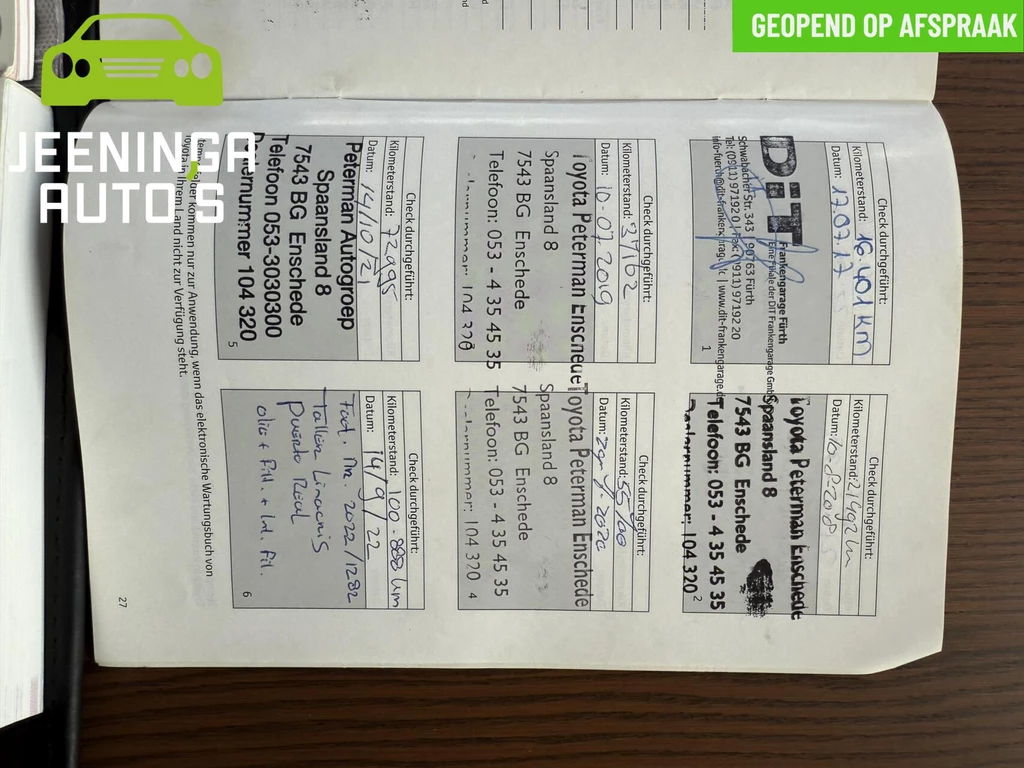 GEOPEND OP AFSPRAAK
JEENINGA
AUTO'S
Check durchgeführt:
Kilometerstand: 16.401 KM
Datum: 17.07.17
DiT
Frankengarage Fürth
Eine Filiale der DIT Frankengarage GmbH
Schwabacher Str. 343 | 90763 Fürth
Tel: (0911) 97192 0 | Fax: (0911) 97192 20
| www.dit-frankengarage.de
1
Check durchgeführt:
Kilometerstand:
Datum:
Toyota Peterman Enschede
Spaansland 8
7543 BG Enschede
Telefoon: 053 - 4 35 45 35
Dealernummer: 104 320
2
Check durchgeführt:
Kilometerstand: 37162
Datum: 10-07-2019
Toyota Peterman Enschede
Spaansland 8
7543 BG Enschede
Telefoon: 053 - 4 35 45 35
104 320
Check durchgeführt:
Kilometerstand:
Datum:
Toyota Peterman Enschede
Spaansland 8
7543 BG Enschede
Telefoon: 053 - 4 35 45 35
104 320
4
Check durchgeführt:
Kilometerstand: 72995
Datum: 14/10/21
Peterman Autogroep
Spaansland 8
7543 BG Enschede
Telefoon 053-3030300
Dealernummer 104 320
5
Check durchgeführt:
Kilometerstand: 100.888 km
Datum: 14/9/22
Fact. Nr. 2022/1282
Taller
Puerto Real
olie + Fil. + Int. Fil.
6
kommen nur zur Anwendung, wenn das elektronische Wartungsbuch von
Toyota in Ihrem Land nicht zur Verfügung steht.
27